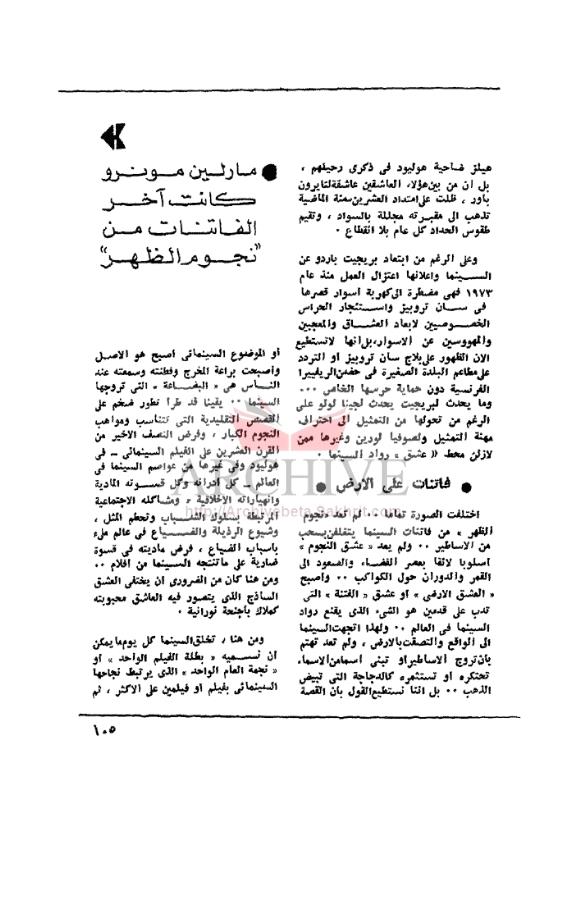 هيلز ضاحية هوليود فى ذكرى رحيلهم ،
بل أن من بين هؤلاء العاشقين عاشقة لتايرون
باور ، ظلت على امتداد العشرين سنة الماضية
تذهب الى مقبرته مجللة بالسواد ، وتقيم
طقوس الحداد كل عام بلا انقطاع ٠
وعلى الرغم من ابتعاد بريجيت باردو عن
السينما واعلانها اعتزال العمل منذ عام
١٩٧٣ فهى مضطرة الى كهربة أسوار قصرها
فى سان تروبيز واستئجار الحراس
الخصوصيين لابعاد العشاق والمعجبين
والمهووسين عن الاسوار، بل أنها لاتستطيع
الان الظهور على بلاج سان تروبيز أو التردد
على مطاعم البلدة الصغيرة فى حضن الريفييرا
الفرنسية دون حماية حرسها الخاص ٠٠٠
وما يحدث لبريجيت يحدث لجينا لولو على
الرغم من تحولها من التمثيل الى احتراف
مهنة التمثيل ولصوفيا لورين وغيرها ممن
لازلن محط « عشق » رواد السينما ٠
● فاتنات على الارض ●
اختلفت الصورة تماما ٠٠ لم تعد « نجوم
الظهر » من فاتنات السينما يتغلفن بسحب
من الاساطير ٠٠ ولم يعد « عشق النجوم »
أسلوبا لائقا بعصر الفضاء والصعود الى
القمر والدوران حول الكواكب ٠٠ وأصبح
« العشق الارضى » أو عشق « الفتنة » التى
تدب على قدمين هو الشىء الذى يقنع رواد
السينما فى العالم ٠٠ ولهذا اتجهت السينما
الى الواقع والتصقت بالارض ، ولم تعد تهتم
بأن تروج الاساطير أو تبنى أسما من الاسماء
تحتكره أو تستثمره كالدجاجة التى تبيض
الذهب ٠٠ بل اننا نستطيع القول بأن القصة
● مارلين مونرو
كانت آخر
الفاتنات من
"نجوم الظهر"
أو الموضوع السينمائى أصبح هو الاصل
وأصبحت براعة المخرج وفطنته وسمعته عند
الناس هى « البضاعة » التى تروجها
السينما ٠٠ يقينا قد طرأ تطور ضخم على
القصص التقليدية التى تتناسب ومواهب
النجوم الكبار ، وفرض النصف الاخير من
القرن العشرين على الفيلم السينمائى ــ فى
هوليود وفى غيرها من عواصم السينما فى
العالم ــ كل أدرانه وكل قسوته المادية
وانهياراته الاخلاقية ، ومشاكله الاجتماعية
المرتبطة بسلوك الشباب وتحطم المثل ،
وشيوع الرذيلة والضياع فى عالم ملىء
بأسباب الضياع ، فرض ماديته فى قسوة
ضارية على ماتنتجه السينما من أفلام ٠٠
ومن هنا كان من الضرورى أن يختفى العشق
الساذج الذى يتصور فيه العاشق محبوبته
كملاك بأجنحة نورانية ٠
ومن هنا ، تخلق السينما كل يوم ما يمكن
أن نسميه « بطلة الفيلم الواحد » أو
« نجمة العام الواحد » الذى يرتبط نجاحها
السينمائى بفيلم أو فيلمين على الاكثر ، ثم
ARCHIVE
http://Archivebeta.Sakhrit.com
١٠٥